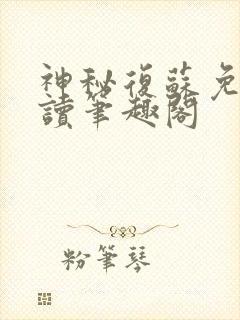 神秘復蘇免
讀筆趣閣
粉筆琴